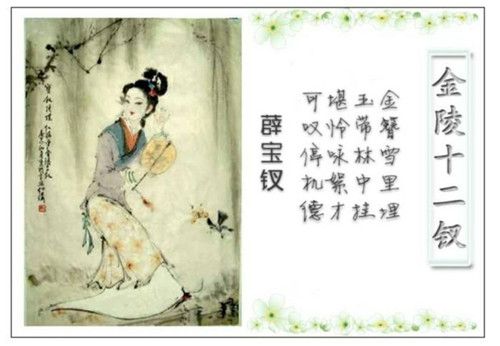 金陵十二钗
薛宝钗
可叹停机德
堪怜咏絮才
玉带林中挂
金簪雪里埋